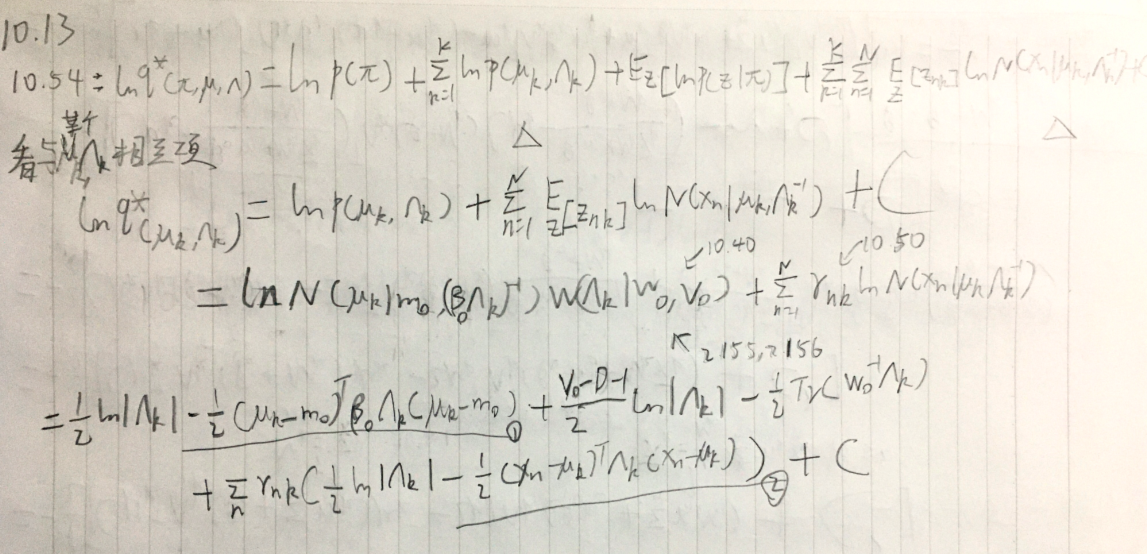 10.13
10.54: ln q*(π,μ,Λ) = ln p(π) + Σ_{n=1}^{K} ln p(μ_k, Λ_k) + E_Z[ln p(z|π)] + Σ_{k=1}^{K} Σ_{n=1}^{N} E_Z[z_{nk}] ln N(x_n|μ_k, Λ_k^{-1}) + C
看与某个 μ_k, Λ_k 相关项 △ △
ln q*(μ_k, Λ_k) = ln p(μ_k, Λ_k) + Σ_{n=1}^{N} E_Z[z_{nk}] ln N(x_n|μ_k, Λ_k^{-1}) + C
↙10.40 ↙10.50
= ln N(μ_k|m_0, (β_0Λ_k)^{-1}) W(Λ_k|W_0, V_0) + Σ_{n=1}^{N} r_{nk} ln N(x_n|μ_k, Λ_k^{-1})
↖ 2.155, 2.156
= 1/2 ln|Λ_k| - 1/2 (μ_k - m_0)^T β_0 Λ_k (μ_k - m_0) ① + (V_0 - D - 1)/2 ln|Λ_k| - 1/2 Tr(W_0^{-1} Λ_k)
+ Σ_n r_{nk} (1/2 ln|Λ_k| - 1/2 (x_n - μ_k)^T Λ_k (x_n - μ_k)) ② + C